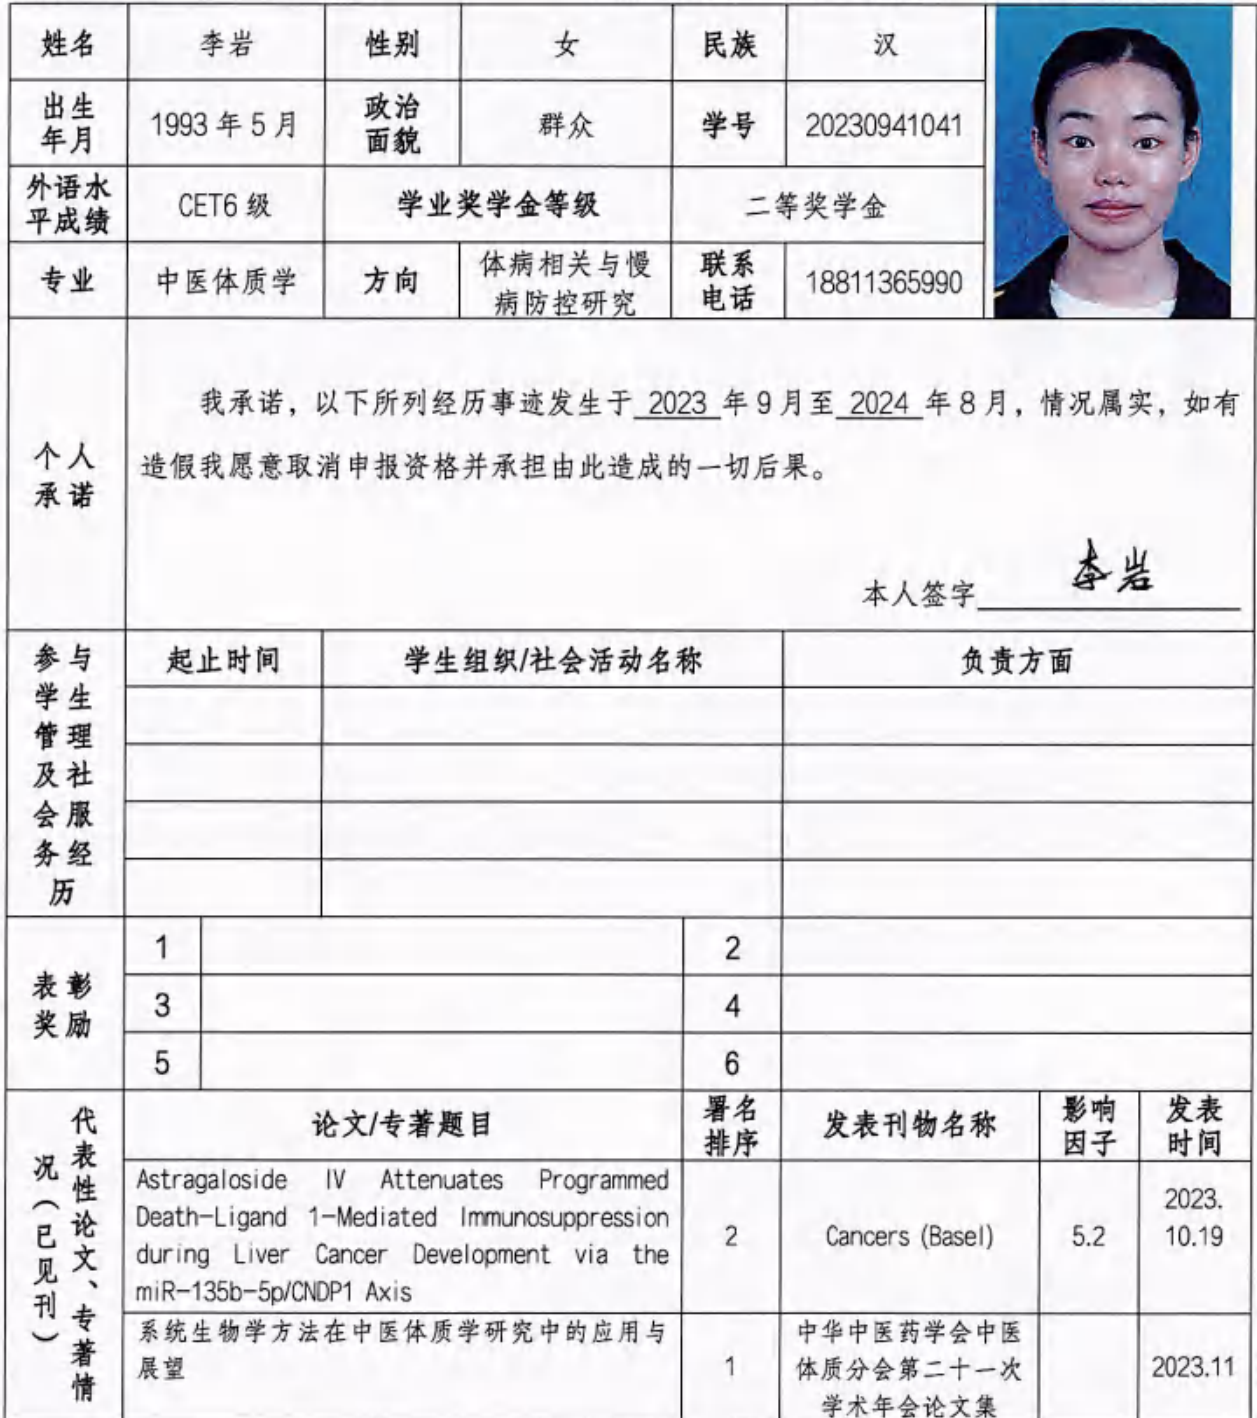 姓名 李岩 性别 女 民族 汉
出生 政治
年月 1993 年 5 月 面貌 群众 学号 20230941041
外语水
平成绩 CET6 级 学业奖学金等级 二等奖学金
专业 中医体质学 方向 体病相关与慢 联系
病防控研究 电话 18811365990
个人
承诺
我承诺，以下所列经历事迹发生于 2023 年 9 月至 2024 年 8 月，情况属实，如有
造假我愿意取消申报资格并承担由此造成的一切后果。
本人签字 李岩
参与
学生
管理
及社
会服
务经
历
起止时间 学生组织/社会活动名称 负责方面
表彰
奖励
1 2
3 4
5 6
代表性论文、专著情
况（已见刊）
论文/专著题目 署名 发表刊物名称 影响 发表
排序 因子 时间
Astragaloside IV Attenuates Programmed
Death-Ligand 1-Mediated Immunosuppression
during Liver Cancer Development via the
miR-135b-5p/CNDP1 Axis
2 Cancers (Basel) 5.2 2023.
10.19
系统生物学方法在中医体质学研究中的应用与
展望
1
中华中医药学会中医
体质分会第二十一次
学术年会论文集
2023.11